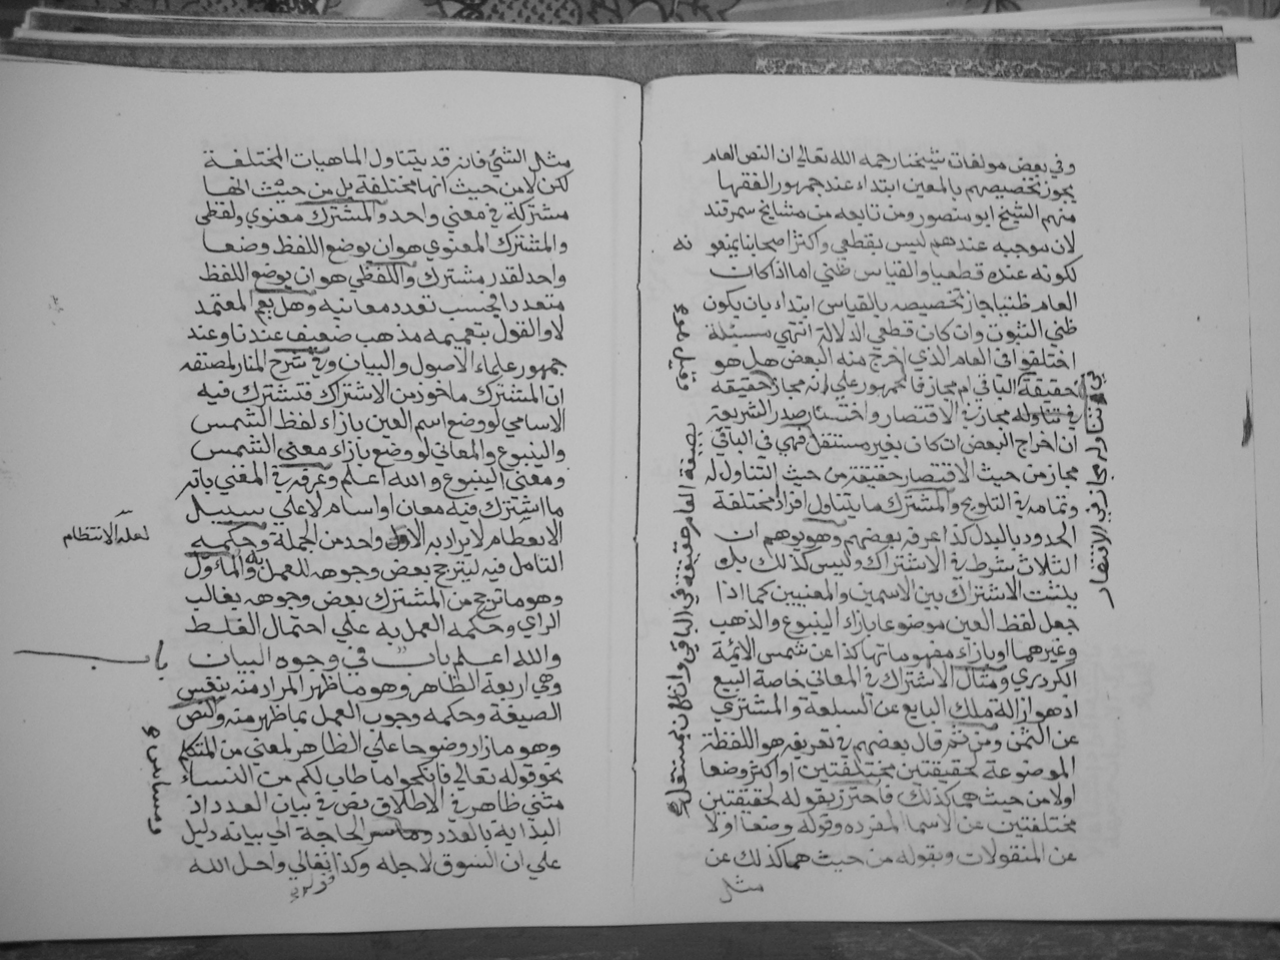 وفي بعض مولفات شيخنا رحمه الله تعالي ان النص العام
يجوز تخصيصهم بالمعين ابتداء عند جمهور الفقها
منهم الشيخ ابو منصور ومن تابعه من مشايخ سمرقند
لان موجبه عندهم ليس بقطعي واكثر اصحابنا يمنعو
نه
لكونه عنده قطعيا والقياس ظني اما اذا كان
العام ظنيا جاز تخصيصه بالقياس ابتداء بان يكون
ظني الثبوت وان كان قطعي الدلالة انتهي مسئلة
اختلفوا في العام الذي اخرج منه البعض هل هو
حقيقة في الباقي ام مجاز فالجمهور علي انه مجاز حقيقة
في تناوله مجاز في الاقتصار واختار صدر الشريعة
ان اخراج البعض ان كان بغير مستقل فهي في الباقي
مجاز من حيث الاقتصار حقيقة من حيث التناول له
وتمامه في التلويح والمشترك ما يتناول افراد مختلفة
الحدود بالبدل كذا عرفه بعضهم وهو يوهم ان
الثلاث شرط في الاشتراك وليس كذلك بل
يثبت الاشتراك بين الاسمين والمعنيين كما اذا
جعل لفظ العين موضوعا بازاء الينبوع والذهب
وغيرهما او بازاء مفهوماتها كذا عن شمس الائمة
الكردري ومثال الاشتراك في المعاني خاصة البيع
اذ هو ازالة ملك البايع عن السلعة والمشتري
عن الثمن ومن ثم قال بعضهم في تعريفه هو اللفظة
الموضوعة لحقيقتين مختلفتين او اكثر وضعا
اولا من حيث هما كذلك فاحترز بقوله لحقيقتين
مختلفتين عن الاسما المفرده وقوله وضعا اولا
عن المنقولات وبقوله من حيث هما كذلك عن
مثل
في تناوله مجاز في الاقتصار
بصيغة العام حقيقة في الباقي وان كان بمستقل
مثل الشئ فانه قد يتناول الماهيات المختلفة
لكن لا من حيث انها مختلفة بل من حيث انها
مشتركة في معني واحد والمشترك معنوي ولفظي
والمشترك المعنوي هو ان يوضع اللفظ وضعا
واحد لقدر مشترك واللفظي هو ان يوضع اللفظ
متعددا بحسب تعدد معانيه وهل يعم المعتمد
لا والقول بتعميمه مذهب ضعيف عندنا وعند
جمهور علماء الاصول والبيان وفي شرح المنار لمصنفه
ان المشترك ماخوذ من الاشتراك فتشترك فيه
الاسامي لو وضع اسم العين بازاء لفظ الشمس
والينبوع والمعاني لو وضع بازاء معني الشمس
ومعني الينبوع والله اعلم وعرفه في المغني بانه
ما اشترك فيه معان او اسام لا علي سبيل
الانعظام لا يراد به الاول واحد من الجملة وحكمه
التامل فيه ليترجح بعض وجوهه للعمل به والماؤل
وهو ما ترجح من المشترك بعض وجوهه بغالب
الراي وحكمه العمل به علي احتمال الغلط
والله اعلم باب في وجوه البيان
وهي اربعة الظاهر وهو ما ظهر المراد منه بنفس
الصيغة وحكمه وجوب العمل بما ظهر منه والنص
وهو ما زاد وضوحا علي الظاهر لمعني من المتكلم
نحو قوله تعالي فانكحوا ما طاب لكم من النساء
مثني ظاهر في الاطلاق نص في بيان العدد اذ
البداية بالعدد الحاجة الي بيانه دليل
علي ان السوق لاجله وكذا تعالي واحل الله
قوله
لعله الانتظام
باب